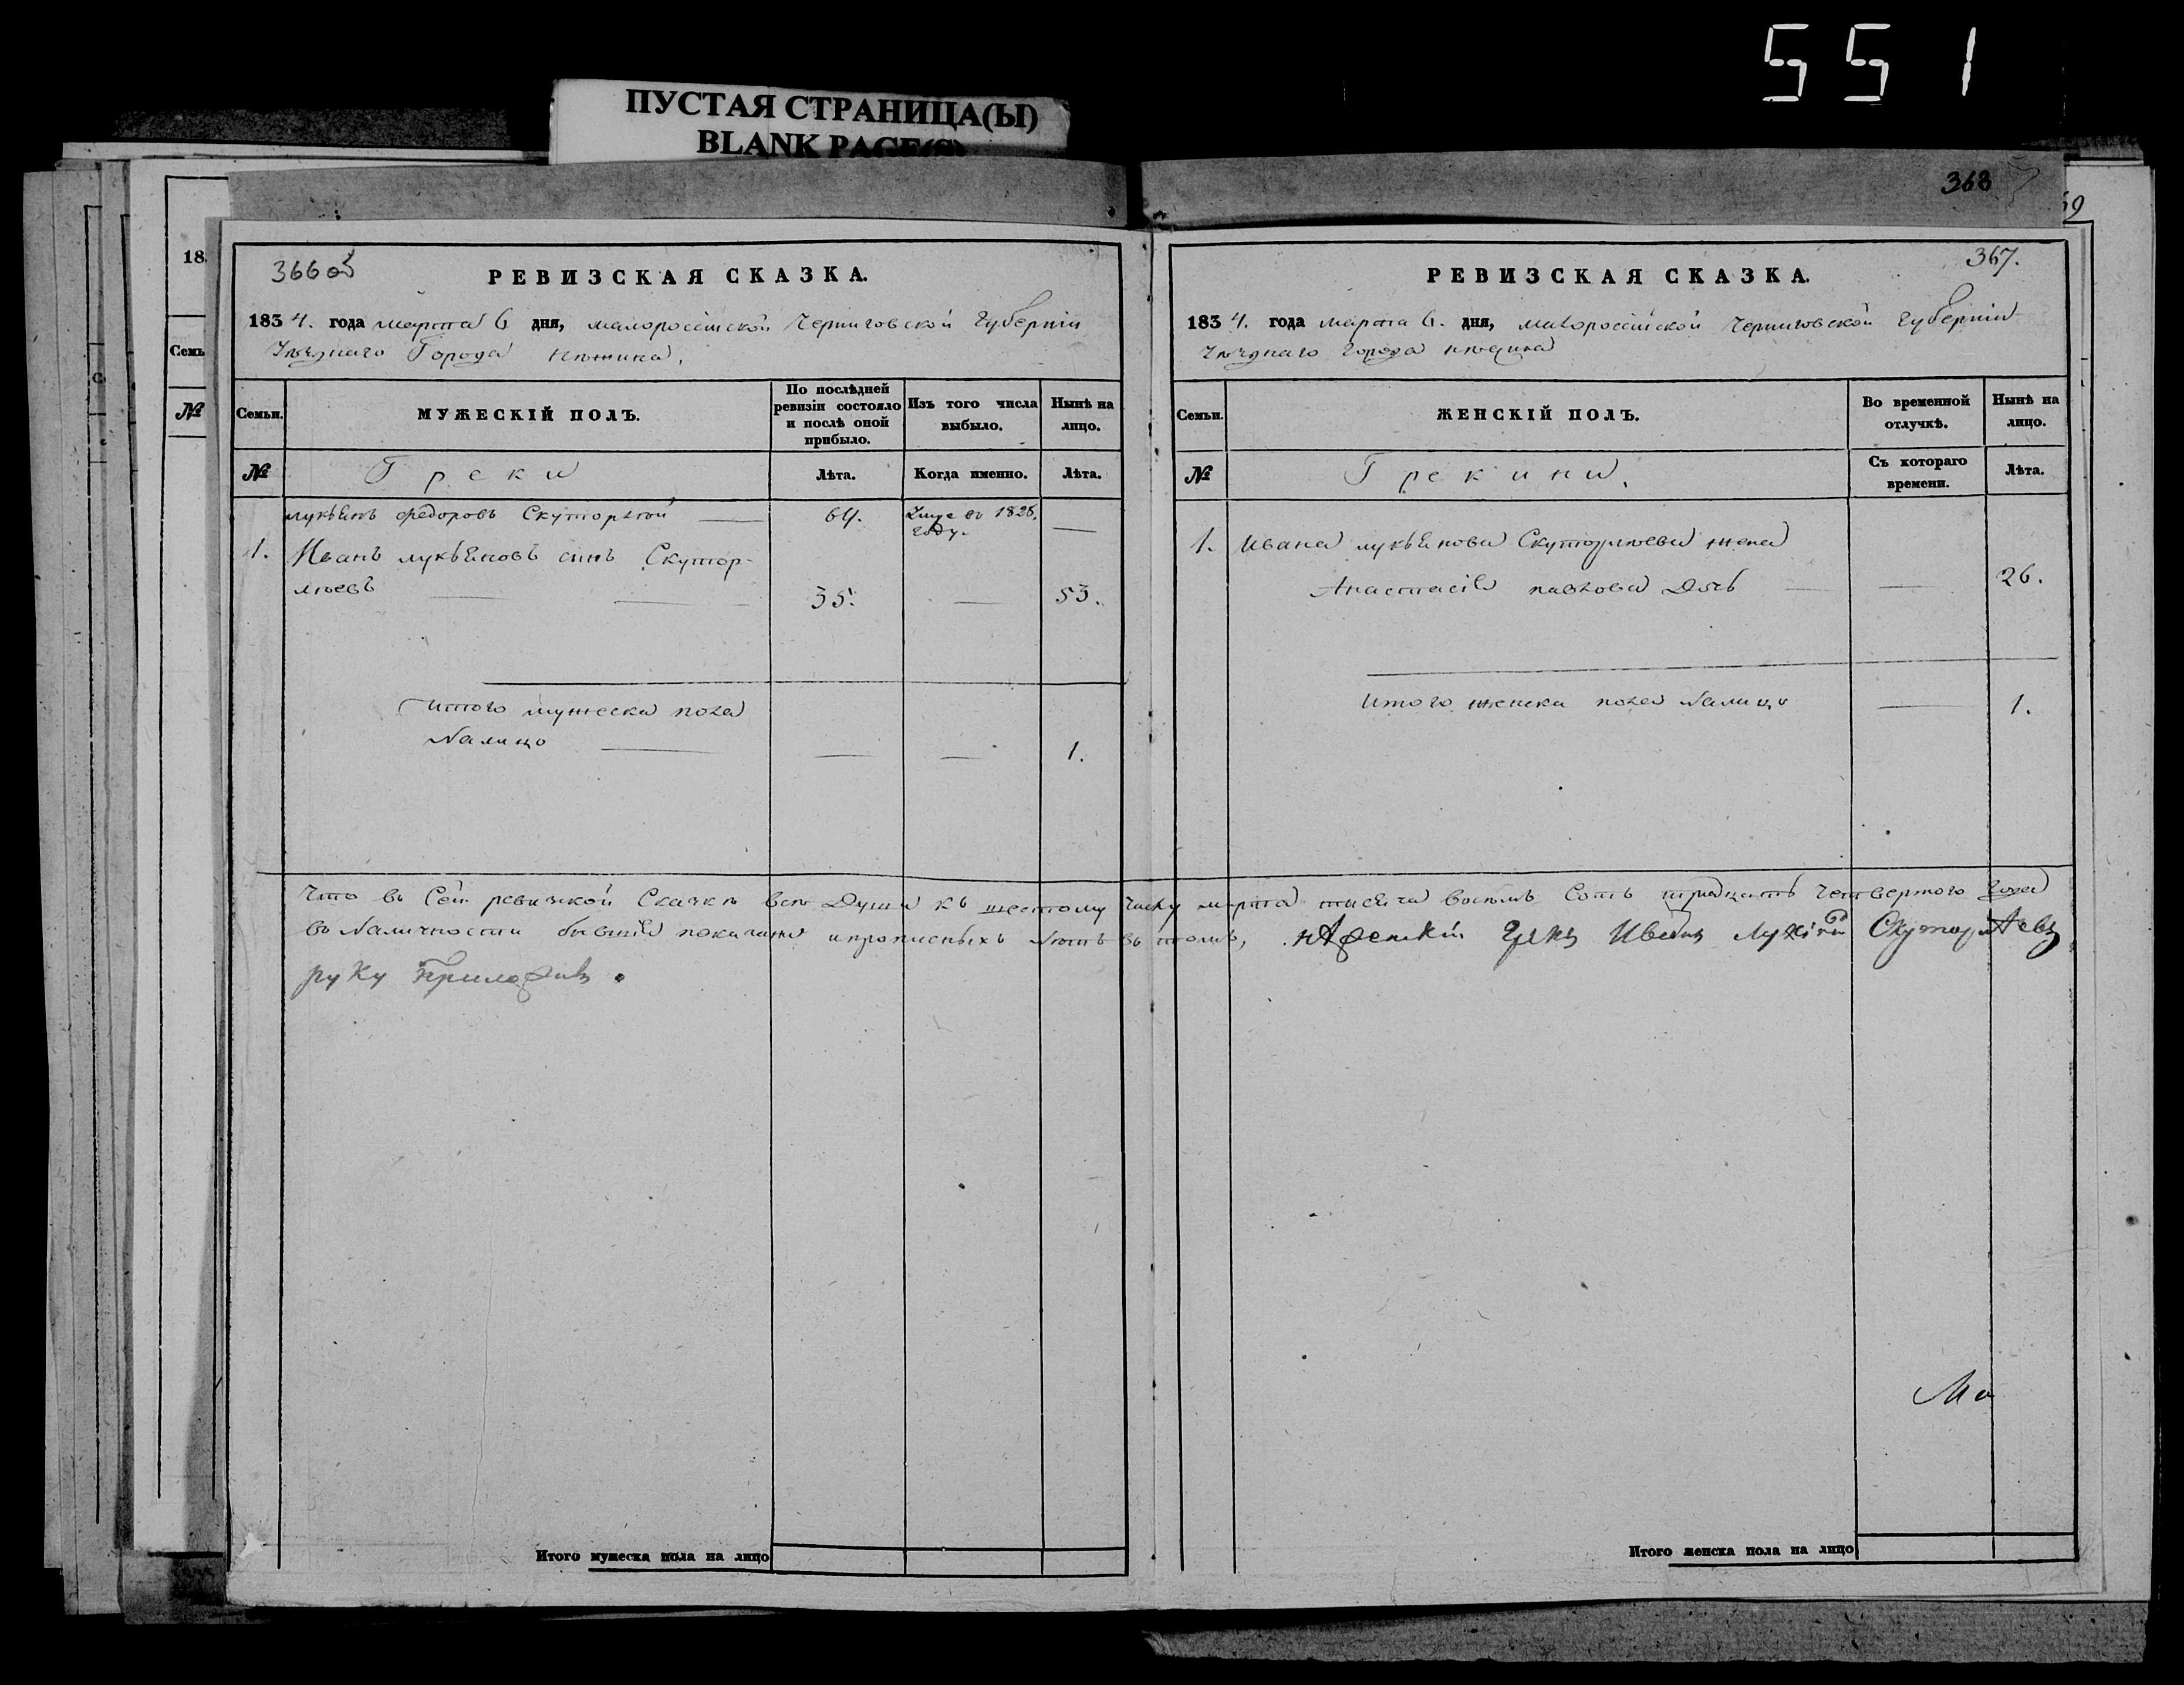 551
ПУСТАЯ СТРАНИЦА(Ы)
BLANK PAGE(S)
368
69
18
Семь
№
366 об
РЕВИЗСКАЯ СКАЗКА.
1834. года марта 6 дня, малоросійской Черниговской Губерніи
Уѣзднаго Города Нѣжина.
Семьи.
МУЖЕСКІЙ ПОЛЪ.
По послѣдней ревизіи состояло и послѣ оной прибыло.
Изъ того числа выбыло.
Нынѣ на лицо.
№
Греки
Лѣта.
Когда именно.
Лѣта.
лукьянъ федоровъ Скуторлтой — 64. Умре въ 1826. —
году.
1. Иванъ лукьяновъ сынъ Скутор-
лѣевъ — — 35. — 53.
Итого мужеска пола
Налицо — — — 1.
367.
РЕВИЗСКАЯ СКАЗКА.
1834. года марта 6. дня, малоросійской Черниговской Губерніи
Уѣзднаго города нѣжина
Семьи.
ЖЕНСКІЙ ПОЛЪ.
Во временной отлучкѣ.
Нынѣ на лицо.
№
Грекини.
Съ котораго времени.
Лѣта.
1. Ивана лукьянова Скуторлѣева жена
Анастасія павлова Дочь — — 26.
Итого женска пола Налицо — 1.
Что въ Сей ревизкой Сказкѣ всѣ Души къ шестому числу марта тисяча восѣмъ Сотъ тридцать Четвертого Года
въ Наличности бывшія показани ипрописныхъ Нѣтъ въ томъ, Иванъ Скуторлевъ
руку Приложилъ.
Итого мужеска пола на лицо
Итого женска пола на лицо